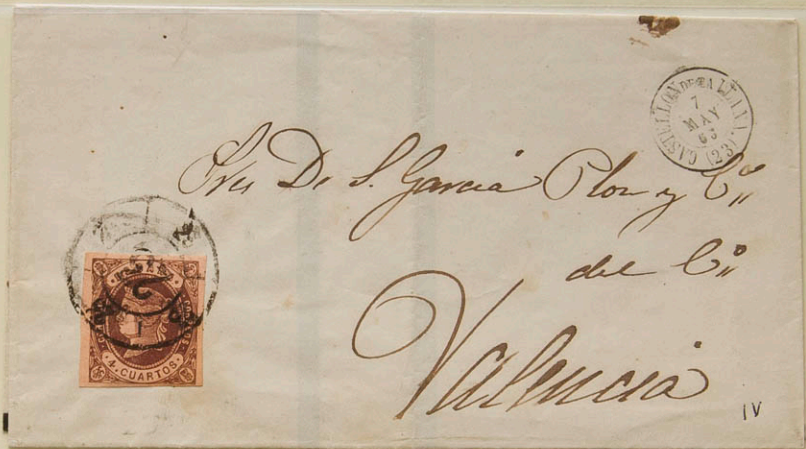 CASTELLON DE LA PLANA.
7
MAY
63
(23)
Sres De S. García Plon y Cª
del Cº
Valencia
4 CUARTOS
IV